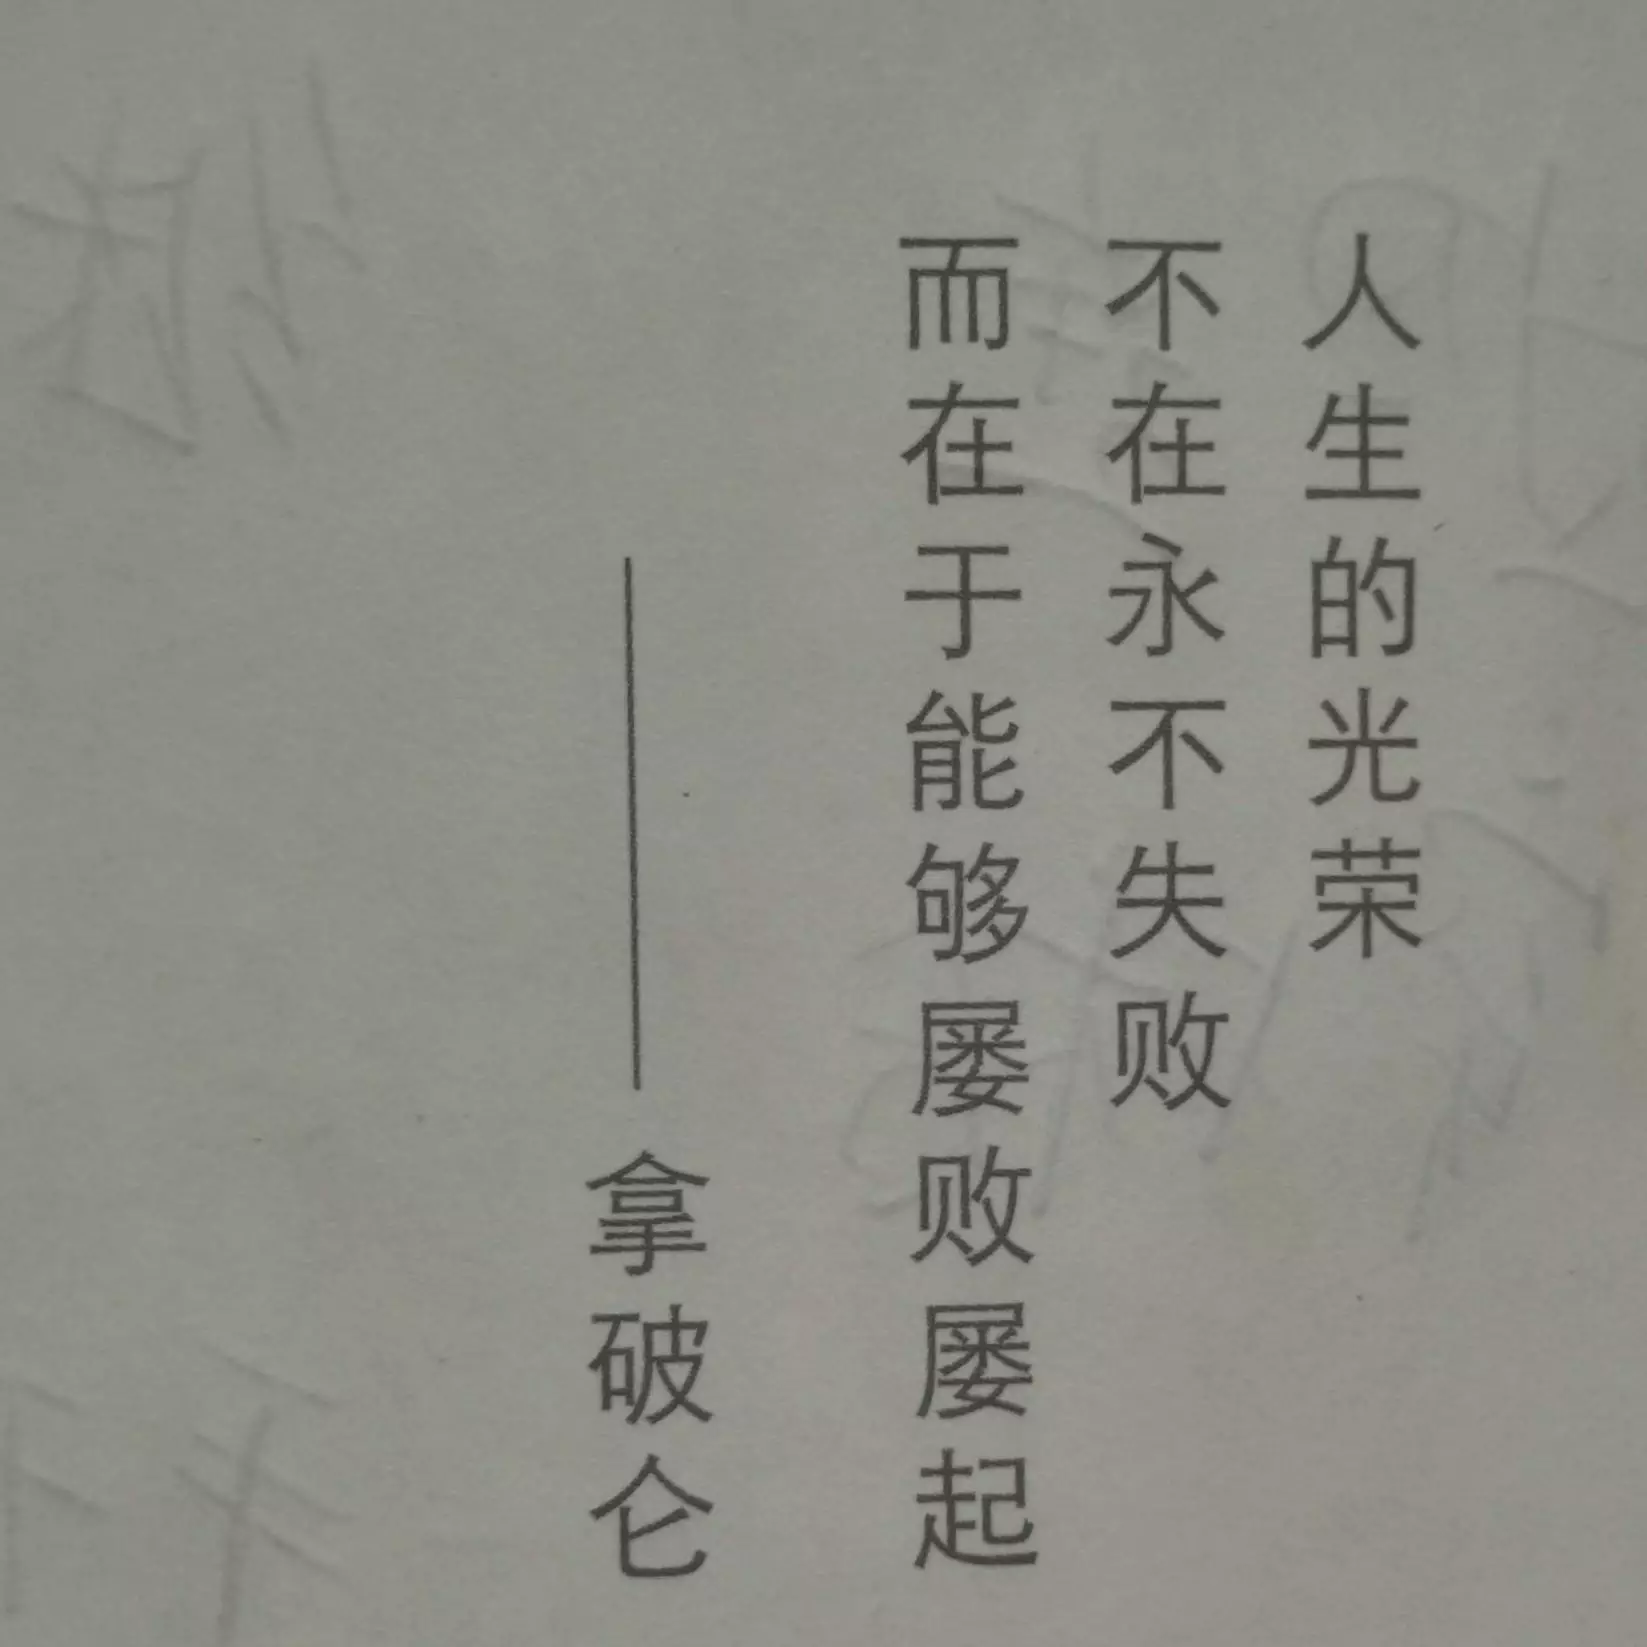 人生的光荣
不在永不失败
而在于能够屡败屡起
——拿破仑